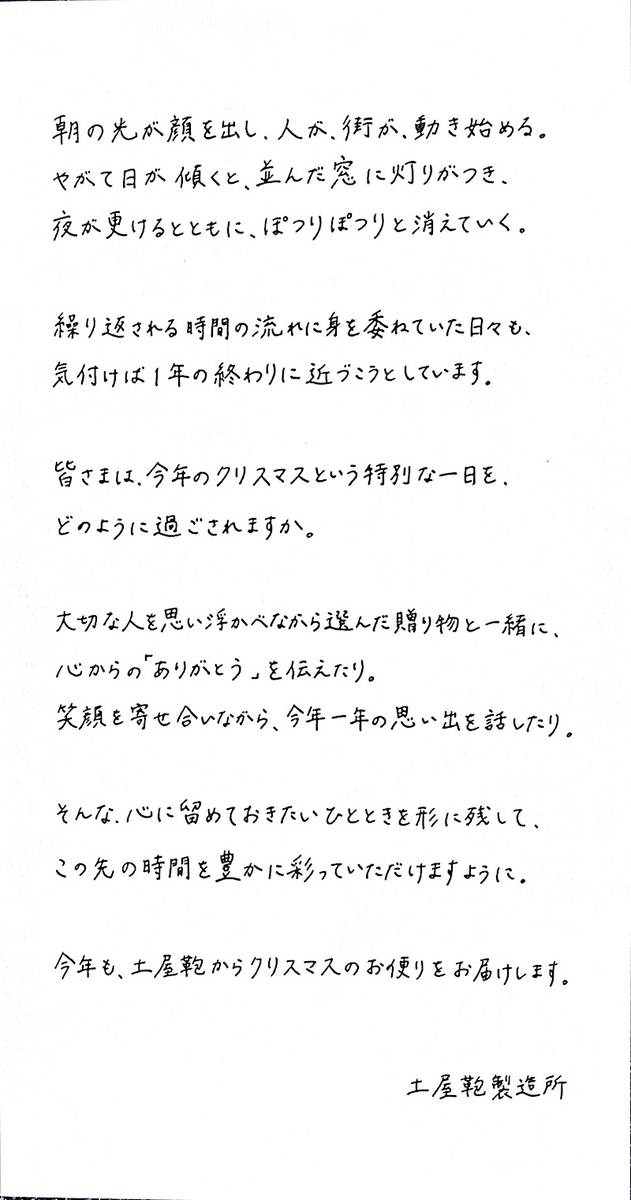 朝の光が顔を出し、人が、街が、動き始める。
やがて日が傾くと、並んだ窓に灯りがつき、
夜が更けるとともに、ぽつりぽつりと消えていく。
繰り返される時間の流れに身を委ねていた日々も、
気付けば1年の終わりに近づこうとしています。
皆さまは、今年のクリスマスという特別な一日を、
どのように過ごされますか。
大切な人を思い浮かべながら選んだ贈り物と一緒に、
心からの「ありがとう」を伝えたり。
笑顔を寄せ合いながら、今年一年の思い出を話したり。
そんな、心に留めておきたいひとときを形に残して、
この先の時間を豊かに彩っていただけますように。
今年も、土屋鞄からクリスマスのお便りをお届けします。
土屋鞄製造所